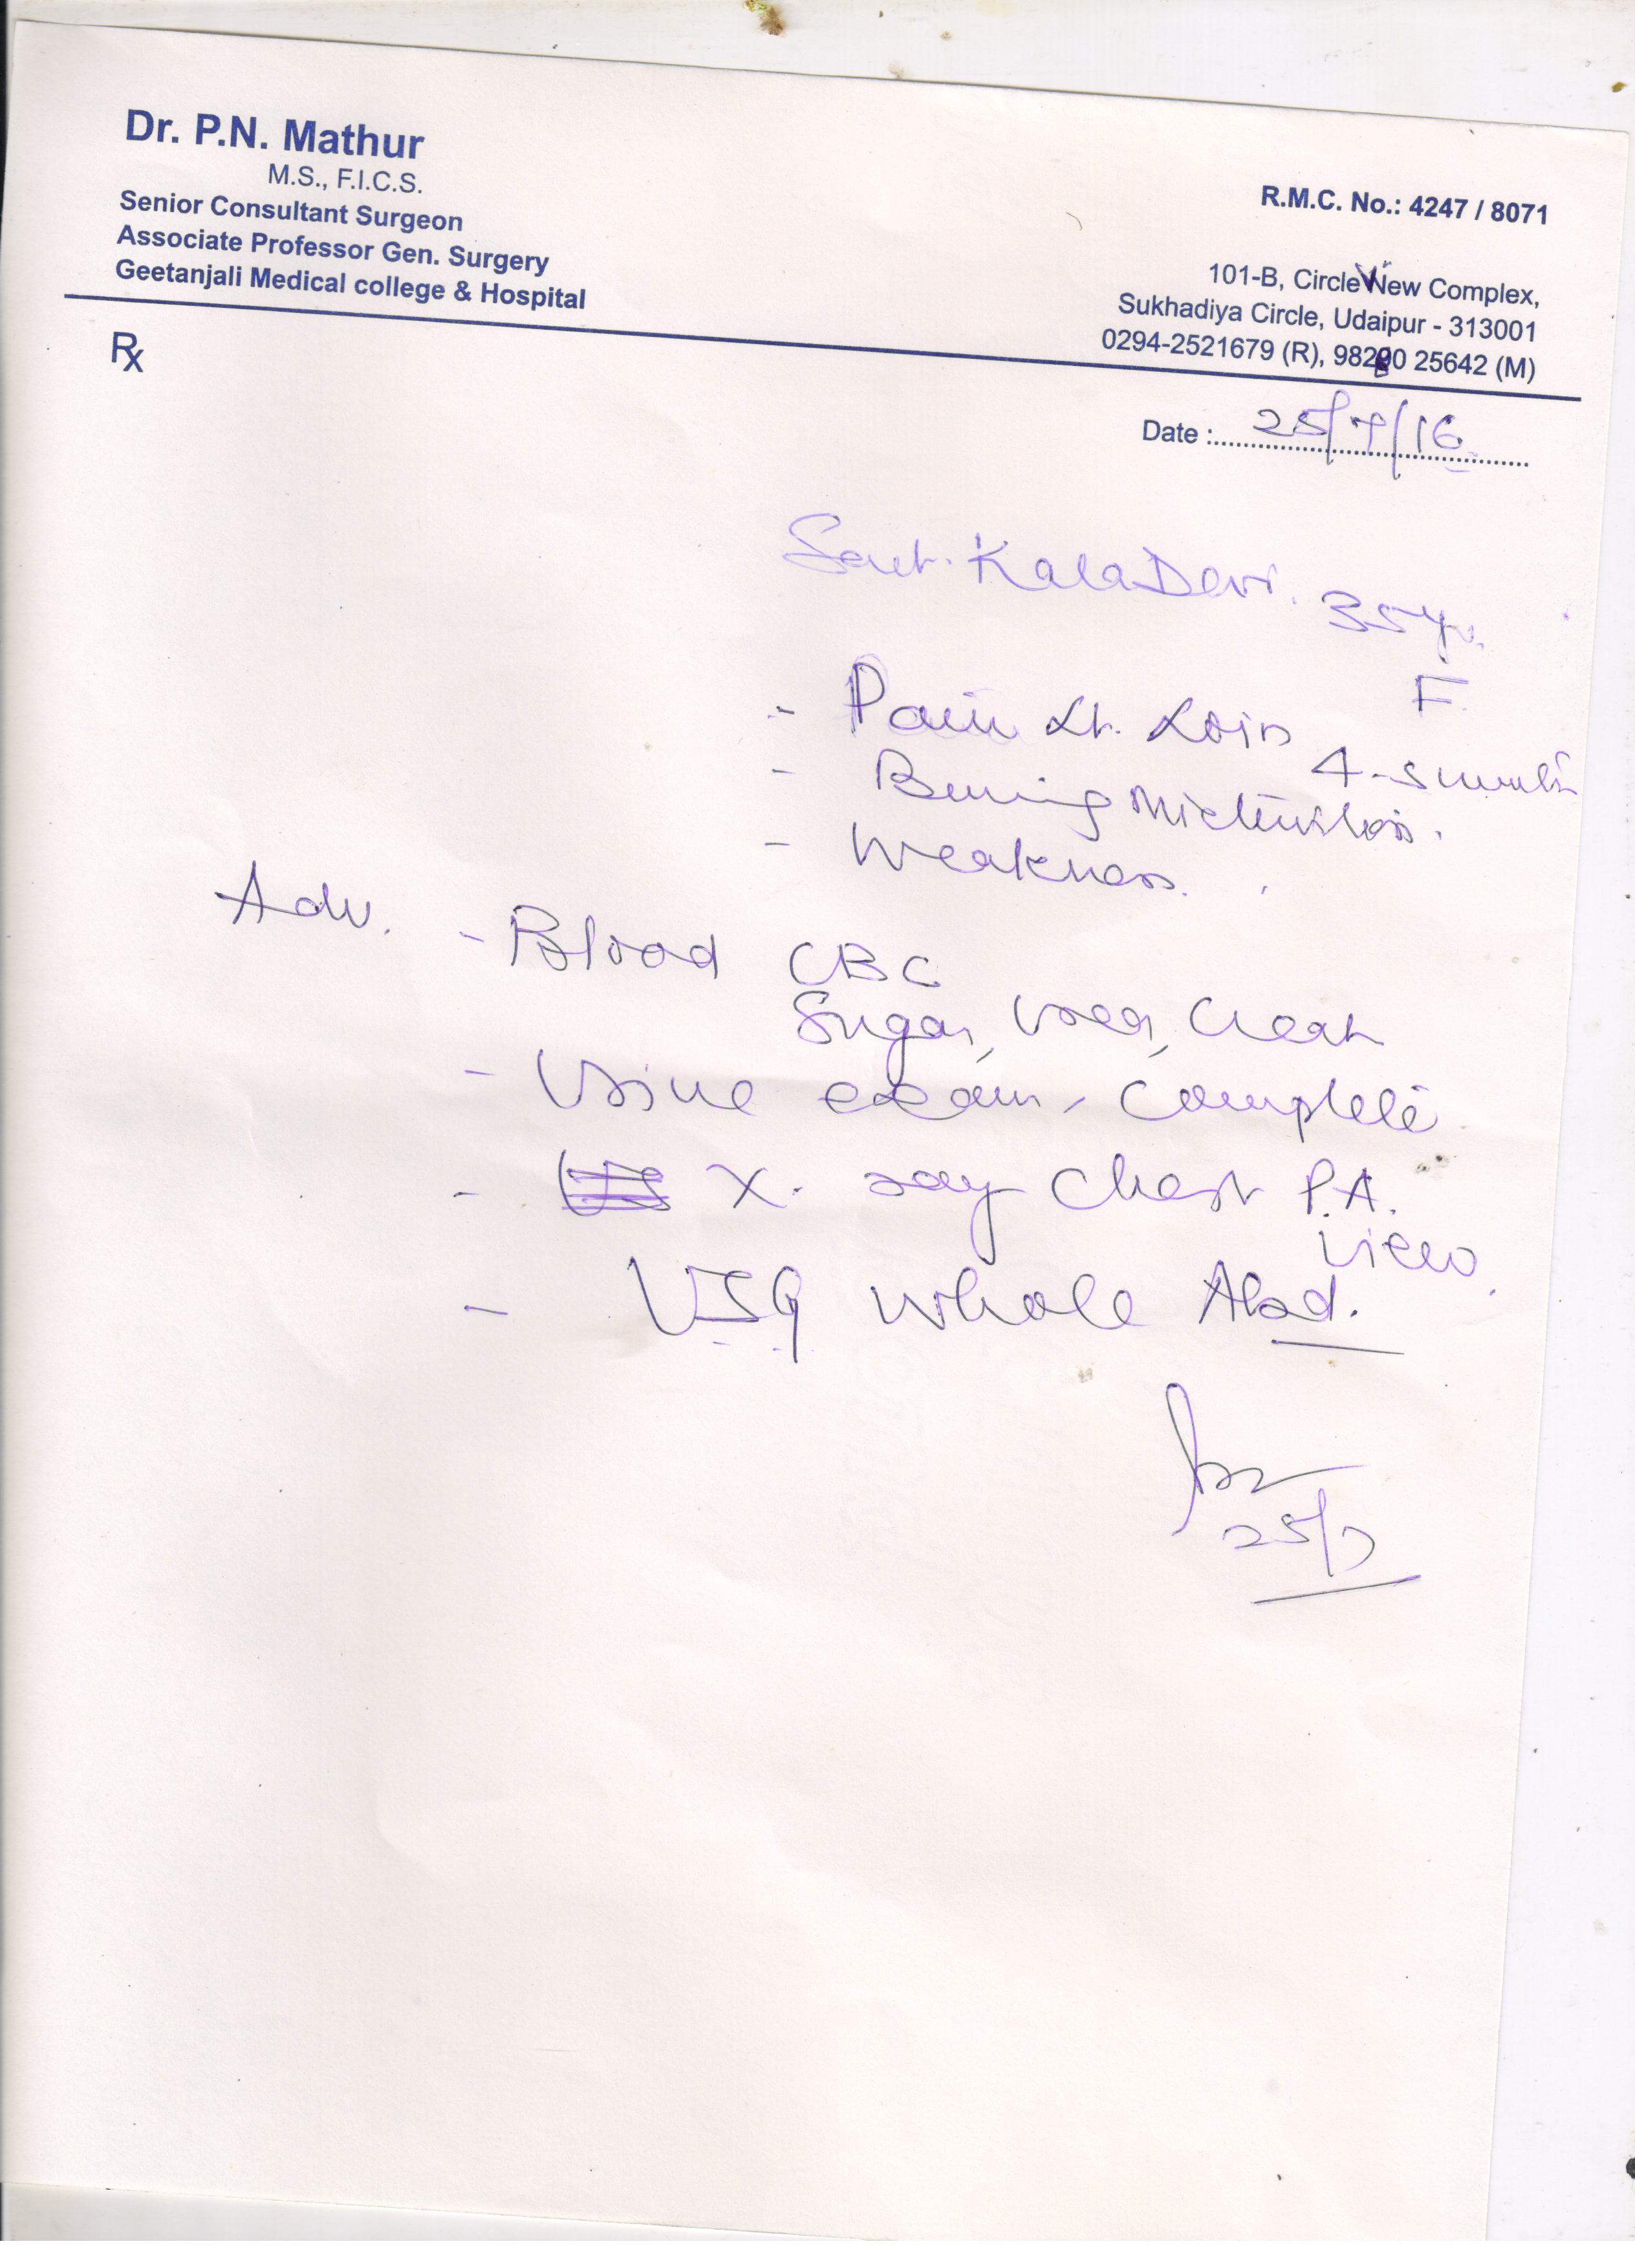 Dr. P.N. Mathur
M.S., F.I.C.S.
Senior Consultant Surgeon
Associate Professor Gen. Surgery
Geetanjali Medical college & Hospital
R.M.C. No.: 4247 / 8071
101-B, Circle View Complex,
Sukhadiya Circle, Udaipur - 313001
0294-2521679 (R), 98280 25642 (M)
Rx
Date : 25/7/16
Smt. Kala Devi. 35 yr.
F.
- Pain Lt. Loin
4-5 months
- Burning Micturition.
- Weakness.
Adv. - Blood CBC
Sugar, Urea, Creat
- Urine exam. Complete
- X. ray Chest P.A.
View.
- USG Whole Abd.
25/7